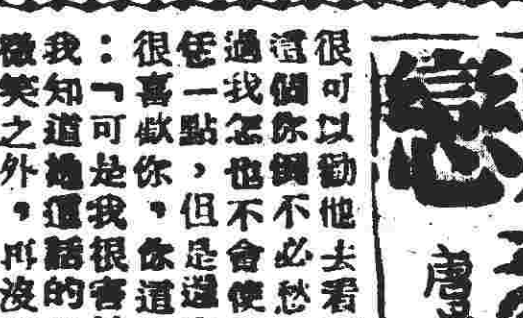 戀
唐
很可以勸他去看
這個你倒不必愁
過我怎也不會使
恁一點，但是過
很喜歡你，你這
：「可是我很害
我知道她這話的
微笑之外，所沒